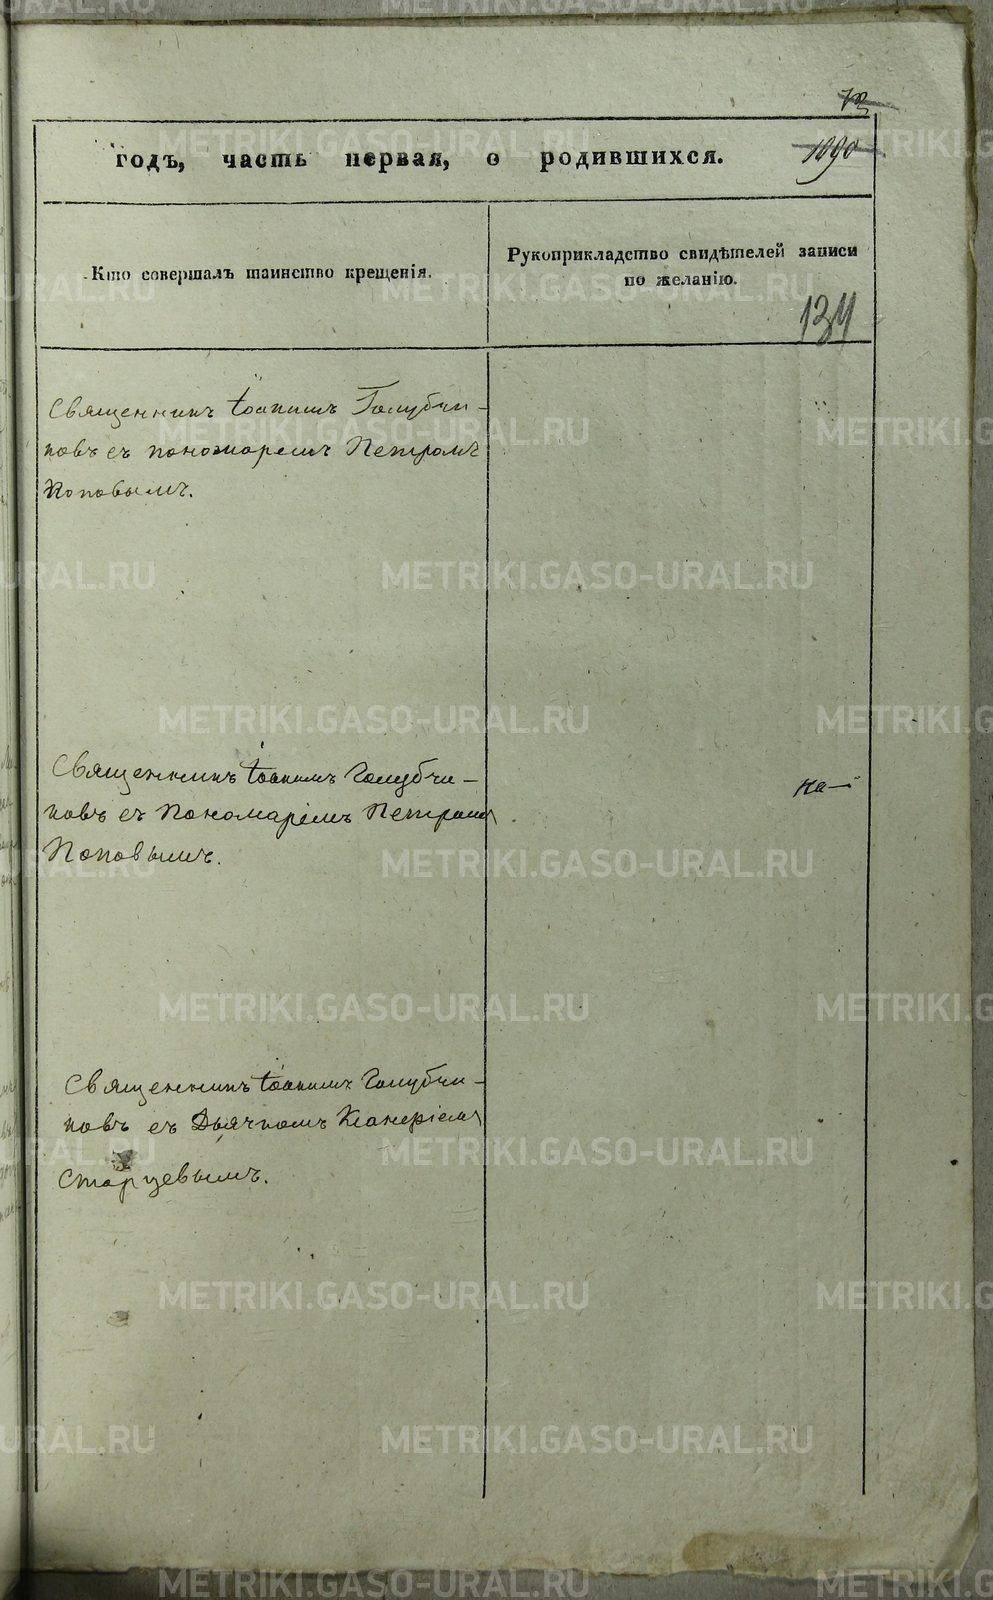 годъ, часть первая, о родившихся.
1090
Кто совершалъ таинство крещенія.
Рукоприкладство свидѣтелей записи
по желанію.
134
Священникъ Іоакимъ Голубчи-
ковъ съ пономаремъ Петромъ
Поповымъ.
Священникъ Іоакимъ Голубчи-
ковъ съ Пономаремъ Петромъ
Поповымъ.
на
Священникъ Іоакимъ Голубчи-
ковъ съ Дьячкомъ
Старцевымъ.
METRIKI.GASO-URAL.RU